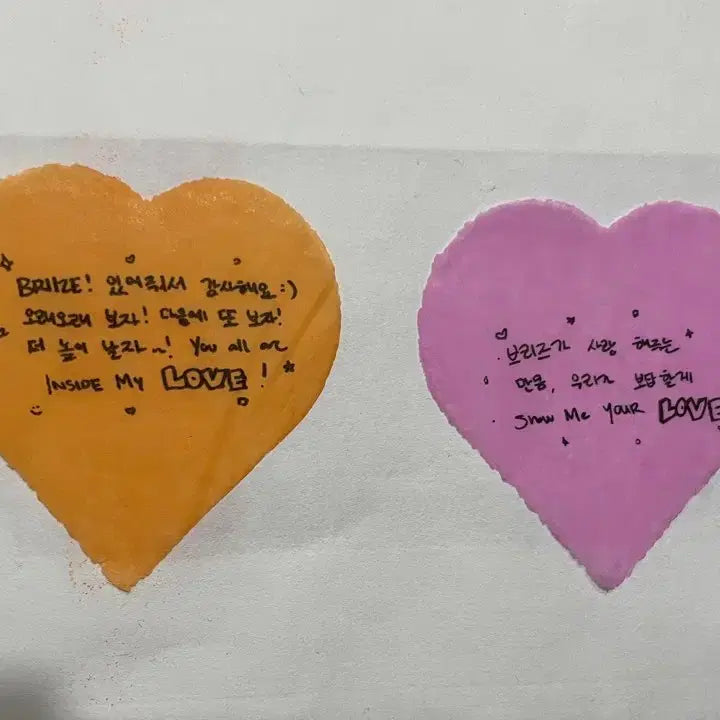 BRIIZE! 있어줘서 감사해요 :)
오래오래 보자! 다음에 또 보자!
더 높이 날자~! You all are
INSIDE MY LOVE!
브리즈가 사랑 해주는
만큼, 우리가 보답할게
Show Me Your LOVE